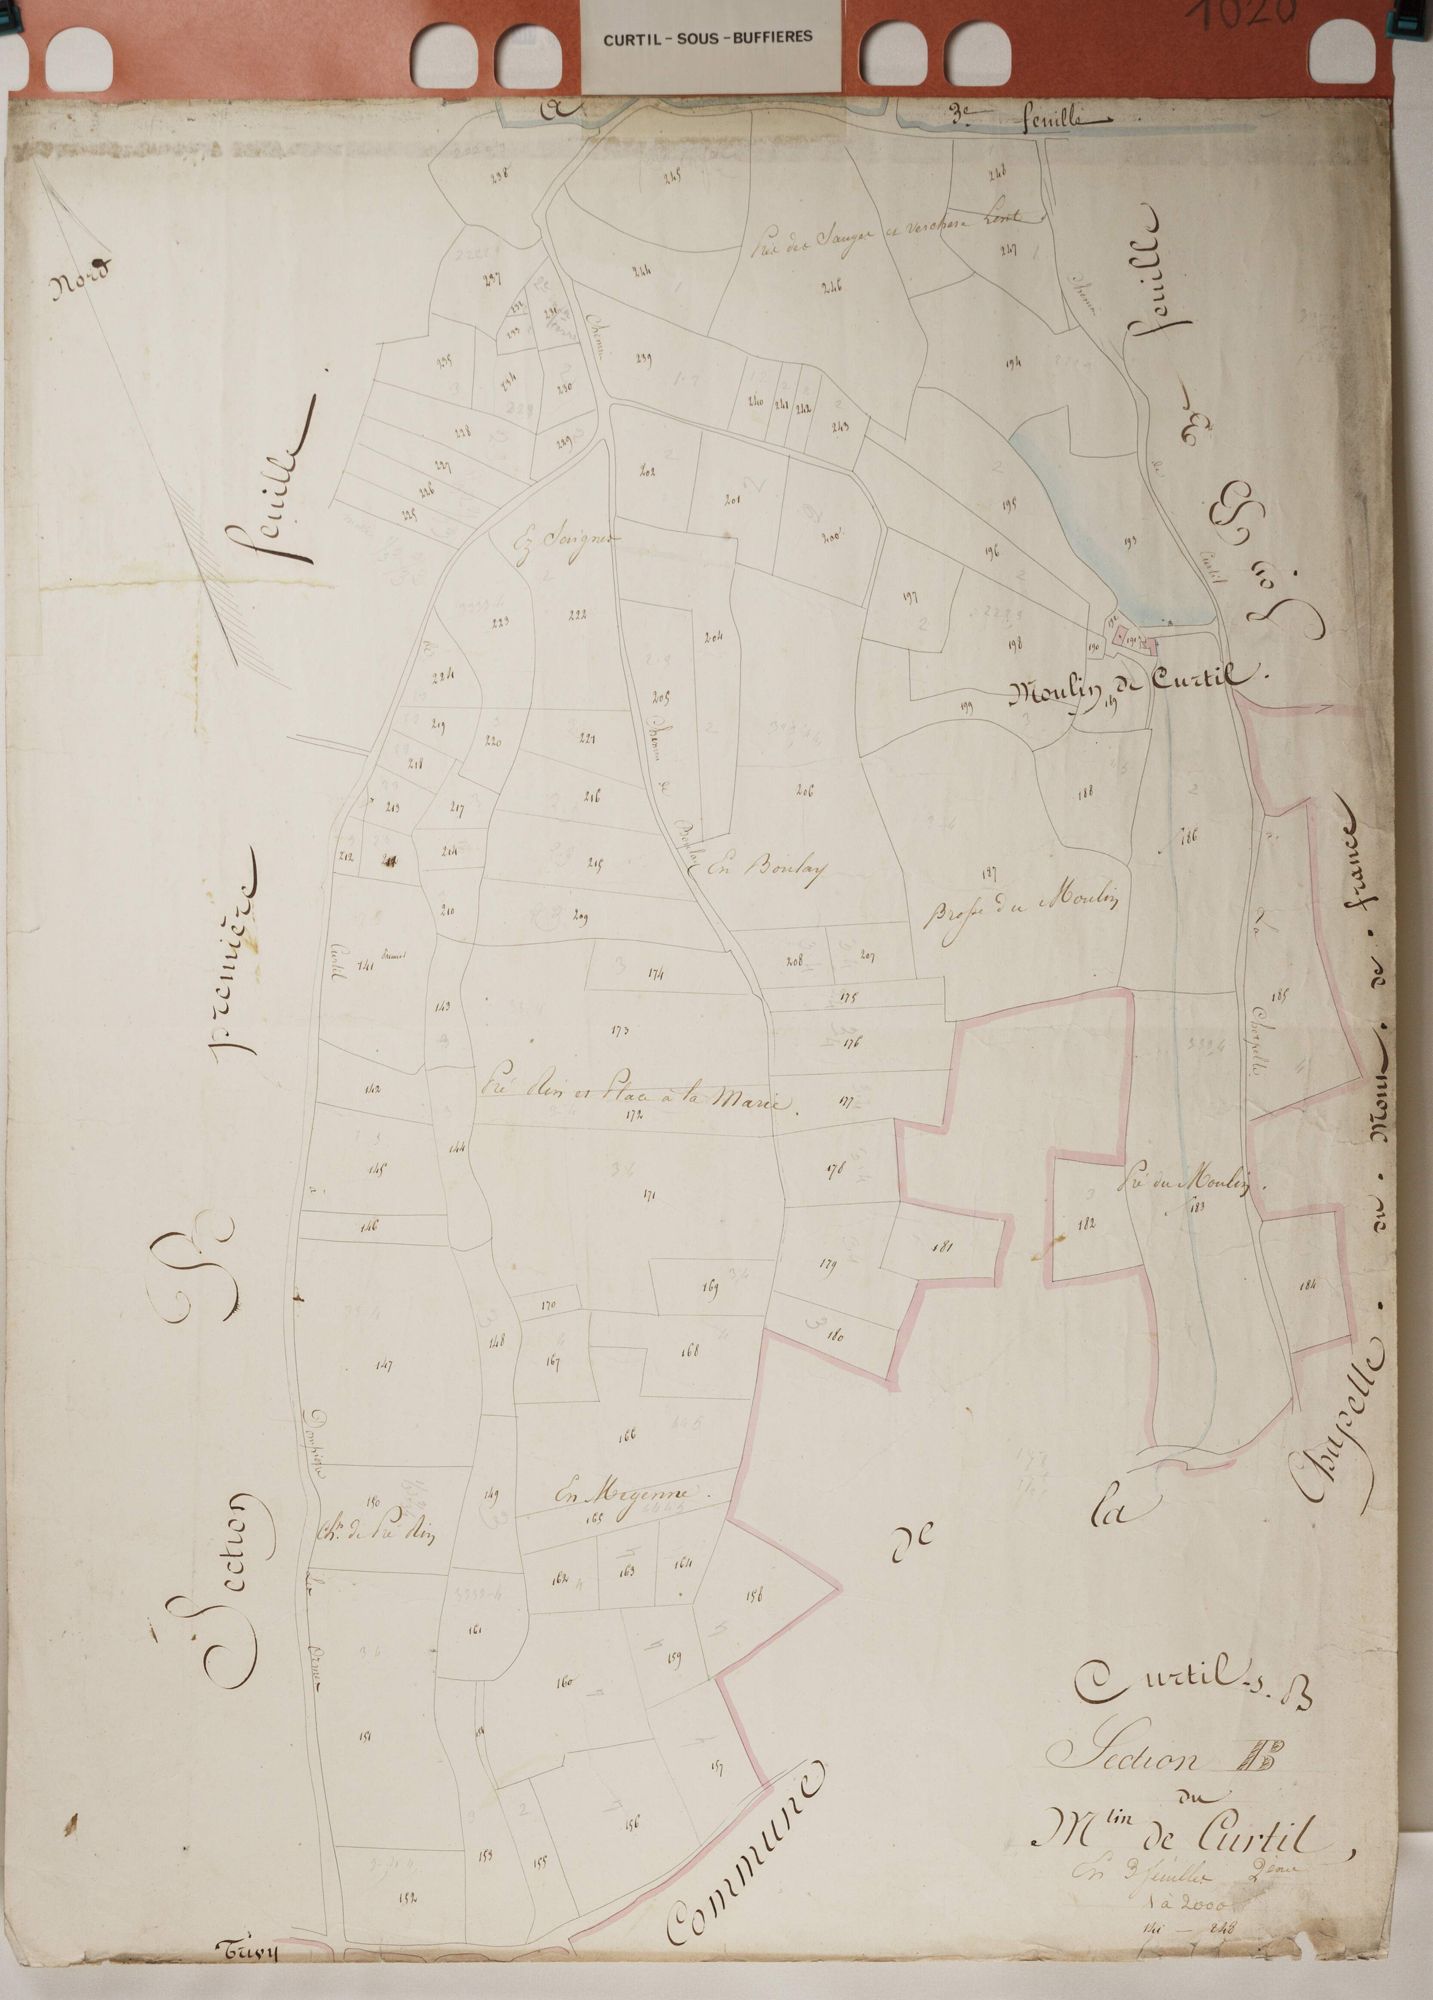 1020
CURTIL-SOUS-BUFFIERES
3e feuille
Nord
238
245
248
Pré des Sauges et Verchere
247
237
244
246
Chemin
feuille
232
231
233
Chemin
239
194
235
234
230
240
241
242
243
228
229
227
226
225
202
201
200
195
196
193
3e
feuille
Curtil
Ez Soignes
223
222
197
198
192
191
190
204
224
205
Moulin de Curtil.
189
199
219
220
221
Chemin de Boulay
218
213
217
216
206
188
186
212
211
214
215
En Boulay
187
Brosse du Moulin
première
210
209
Curtil
141
208
207
174
175
185
143
173
176
La
Chapelle
142
Pré Rin et Place à la Marie.
172
177
144
145
178
171
Pré du Moulin.
183
182
146
181
179
184
169
170
180
148
147
167
168
B
166
Dompierre
150
149
En Meyenne.
165
Ch. de Pré Rin
162
163
164
158
Section
161
159
160
151
154
157
156
153
155
152
Trivy
Commune
de
la
Chapelle . du . Mont . de . france
Curtil-s. B
Section B
du
Mlin de Curtil,
En 3 feuilles 2ème
1 à 2000
141 — 248